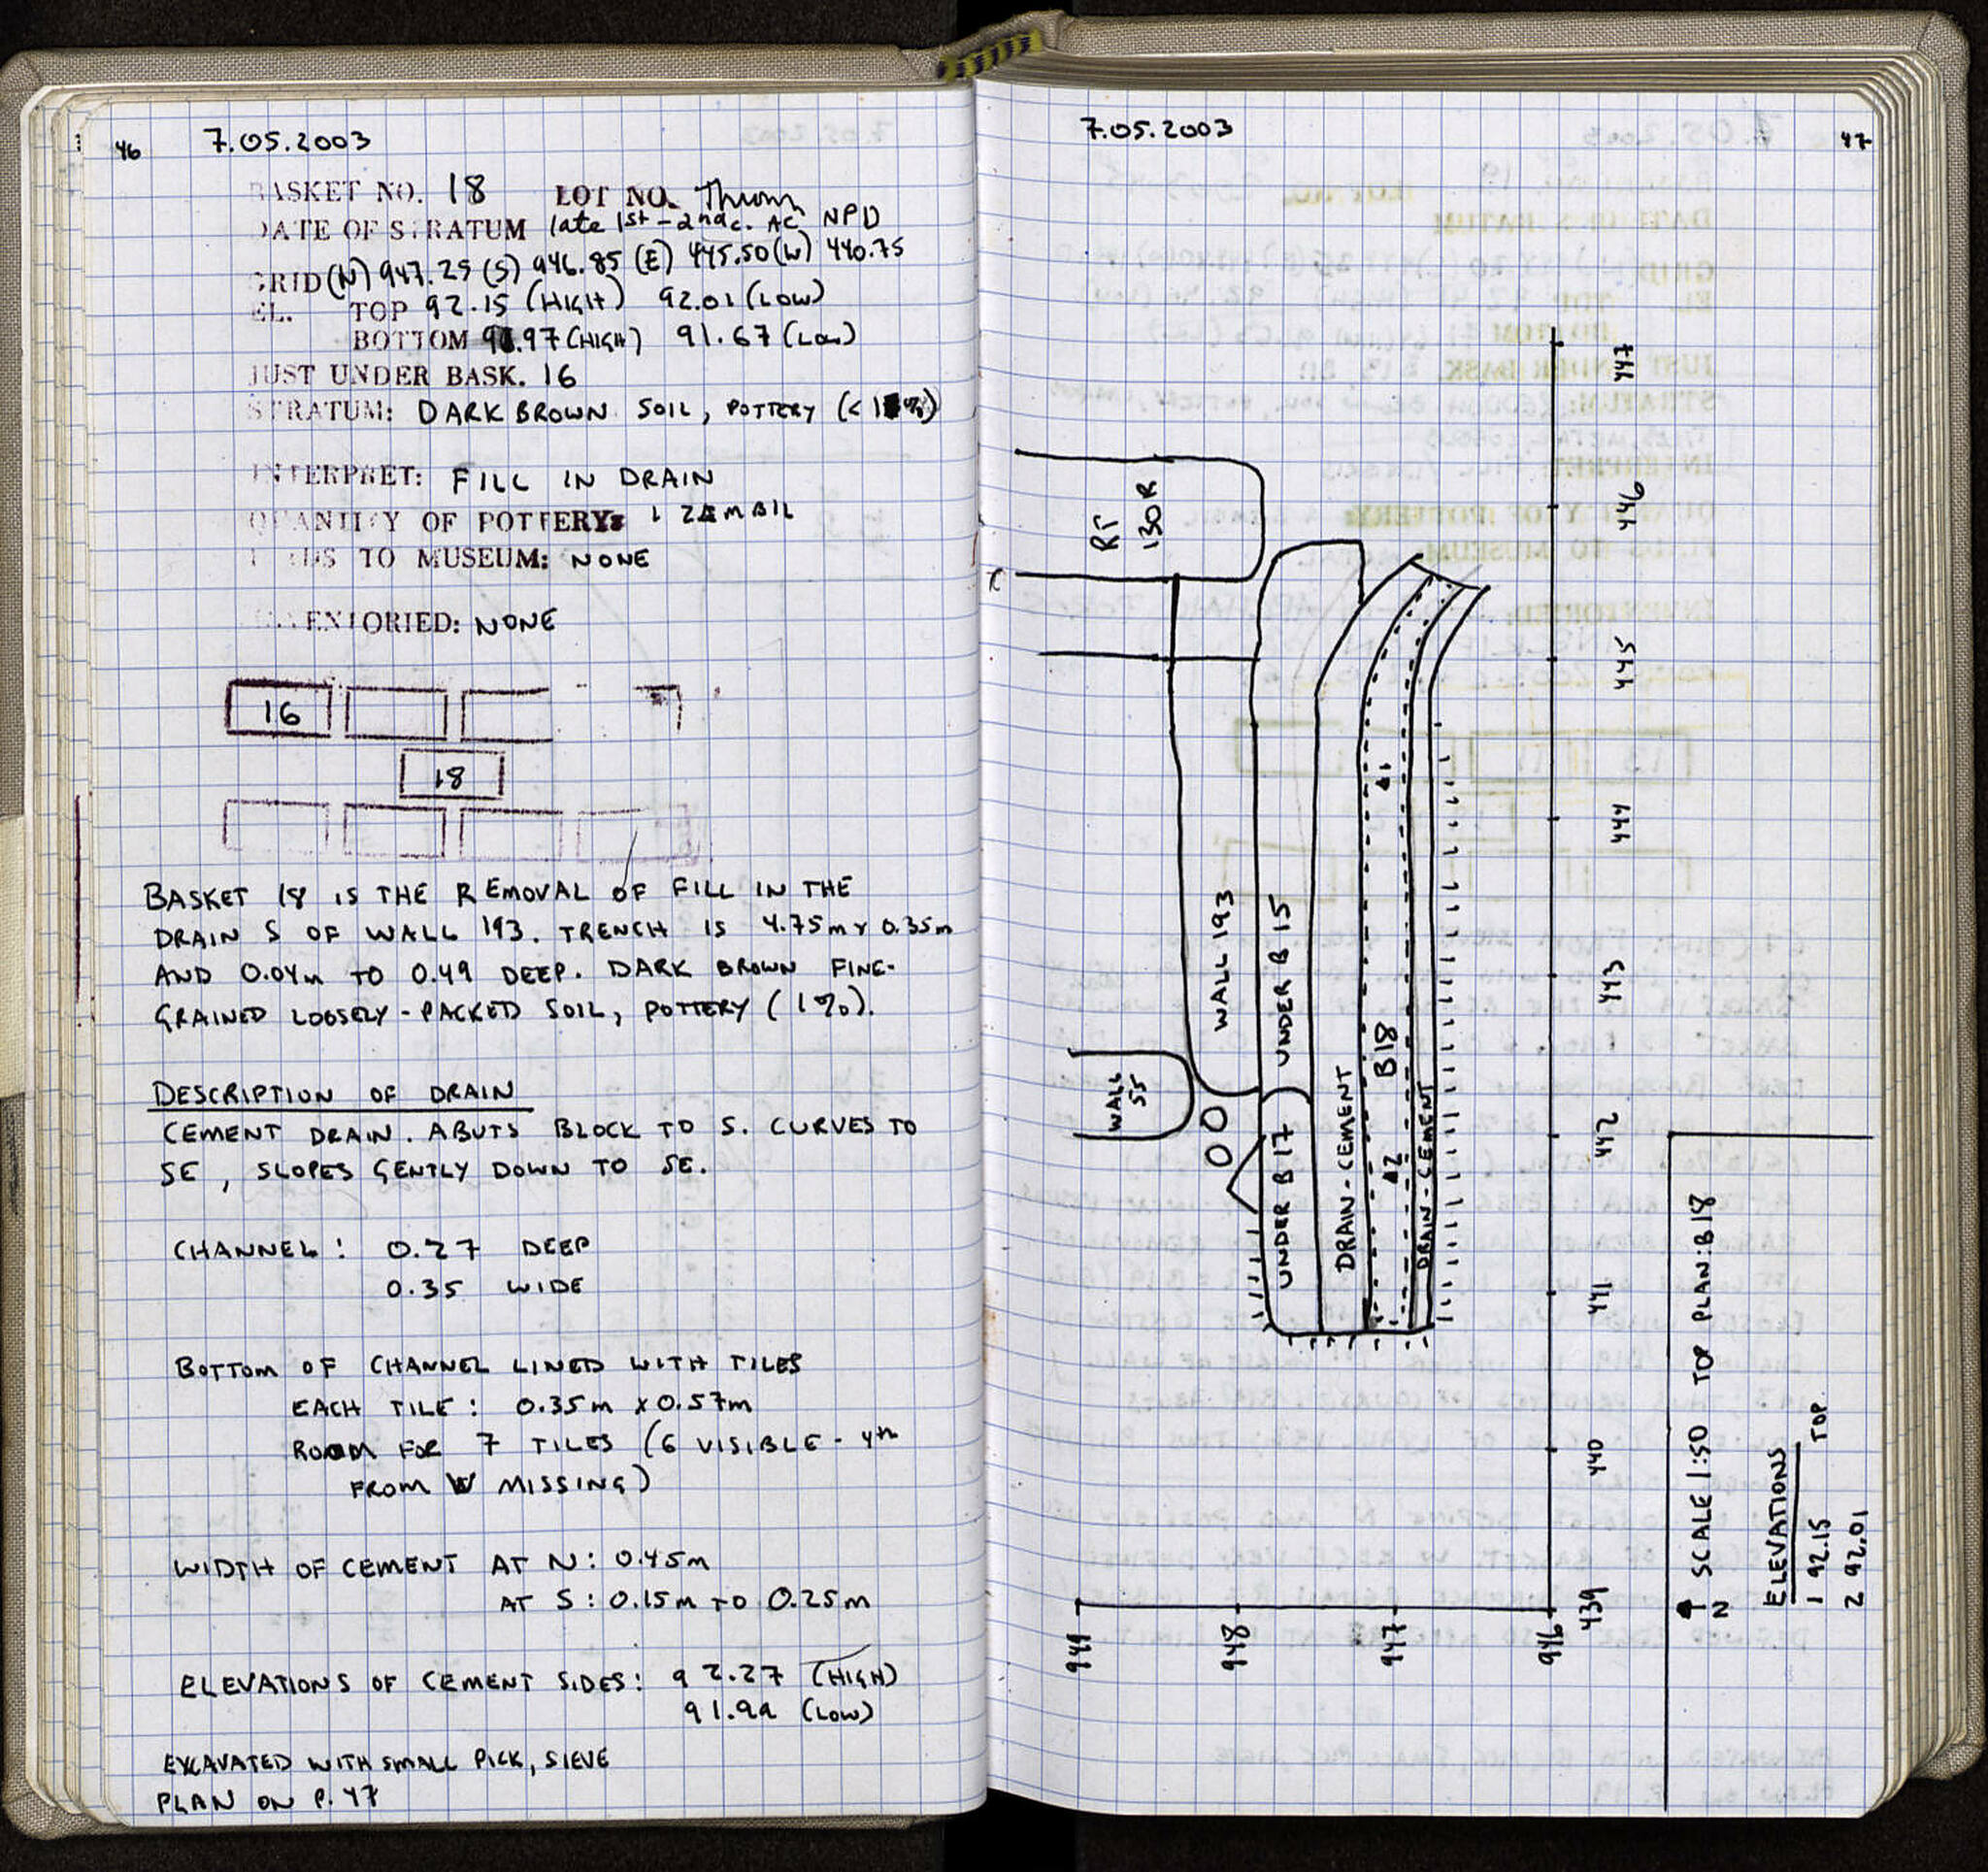 46
7.05.2003
BASKET NO. 18 LOT NO. Thrown
DATE OF STRATUM late 1st - 2nd c. AC NPD
GRID (N) 947.25 (S) 946.85 (E) 445.50 (W) 440.75
EL. TOP 92.15 (HIGH) 92.01 (LOW)
BOTTOM 91.97 (HIGH) 91.67 (LOW)
JUST UNDER BASK. 16
STRATUM: DARK BROWN SOIL, POTTERY (<1%)
INTERPRET: FILL IN DRAIN
QUANTITY OF POTTERY:
FINDS TO MUSEUM: NONE
INVENTORIED: NONE
16
18
BASKET 18 IS THE REMOVAL OF FILL IN THE
DRAIN S OF WALL 193. TRENCH IS 4.75m x 0.35m
AND 0.04m TO 0.49 DEEP. DARK BROWN FINE-
GRAINED LOOSELY-PACKED SOIL, POTTERY (1%).
DESCRIPTION OF DRAIN
CEMENT DRAIN. ABUTS BLOCK TO S. CURVES TO
SE, SLOPES GENTLY DOWN TO SE.
CHANNEL: 0.27 DEEP
0.35 WIDE
BOTTOM OF CHANNEL LINED WITH TILES
EACH TILE: 0.35m x 0.57m
ROOM FOR 7 TILES (6 VISIBLE - 4th
FROM W MISSING)
WIDTH OF CEMENT AT N: 0.45m
AT S: 0.15m TO 0.25m
ELEVATIONS OF CEMENT SIDES: 92.27 (HIGH)
91.99 (LOW)
EXCAVATED WITH SMALL PICK, SIEVE
PLAN ON P. 47
7.05.2003
47
RT
130R
WALL 193
UNDER B 15
WALL
55
UNDER B 17
DRAIN-CEMENT
B18
DRAIN-CEMENT
1
2
447
446
445
444
443
442
441
440
439
949
948
947
946
N
SCALE 1:50 TOP PLAN: B18
ELEVATIONS
TOP
1 92.15
2 92.01